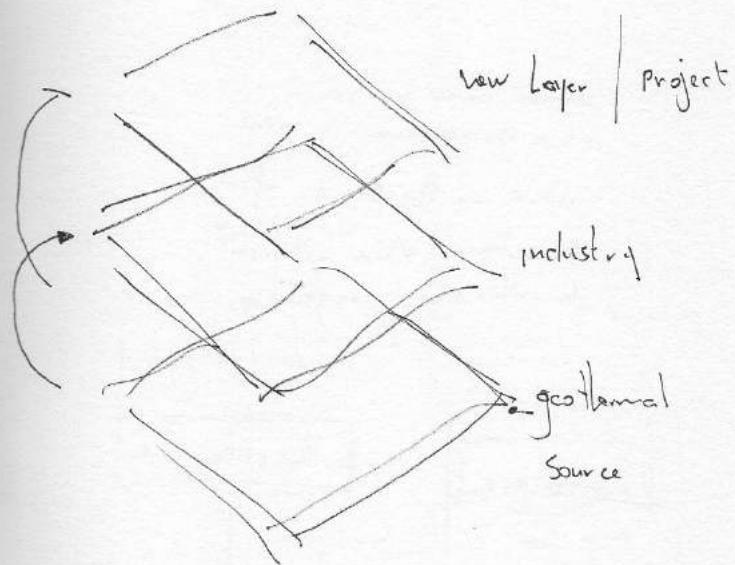 new Layer | Project
industry
geothermal
Source